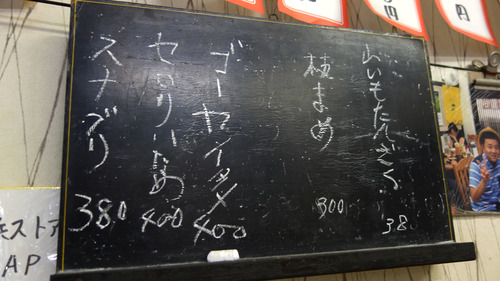 山いもたんざく 380
枝まめ 300
ゴーヤイタメ 400
セロリいため 400
スナズリ 380
モストア
AP